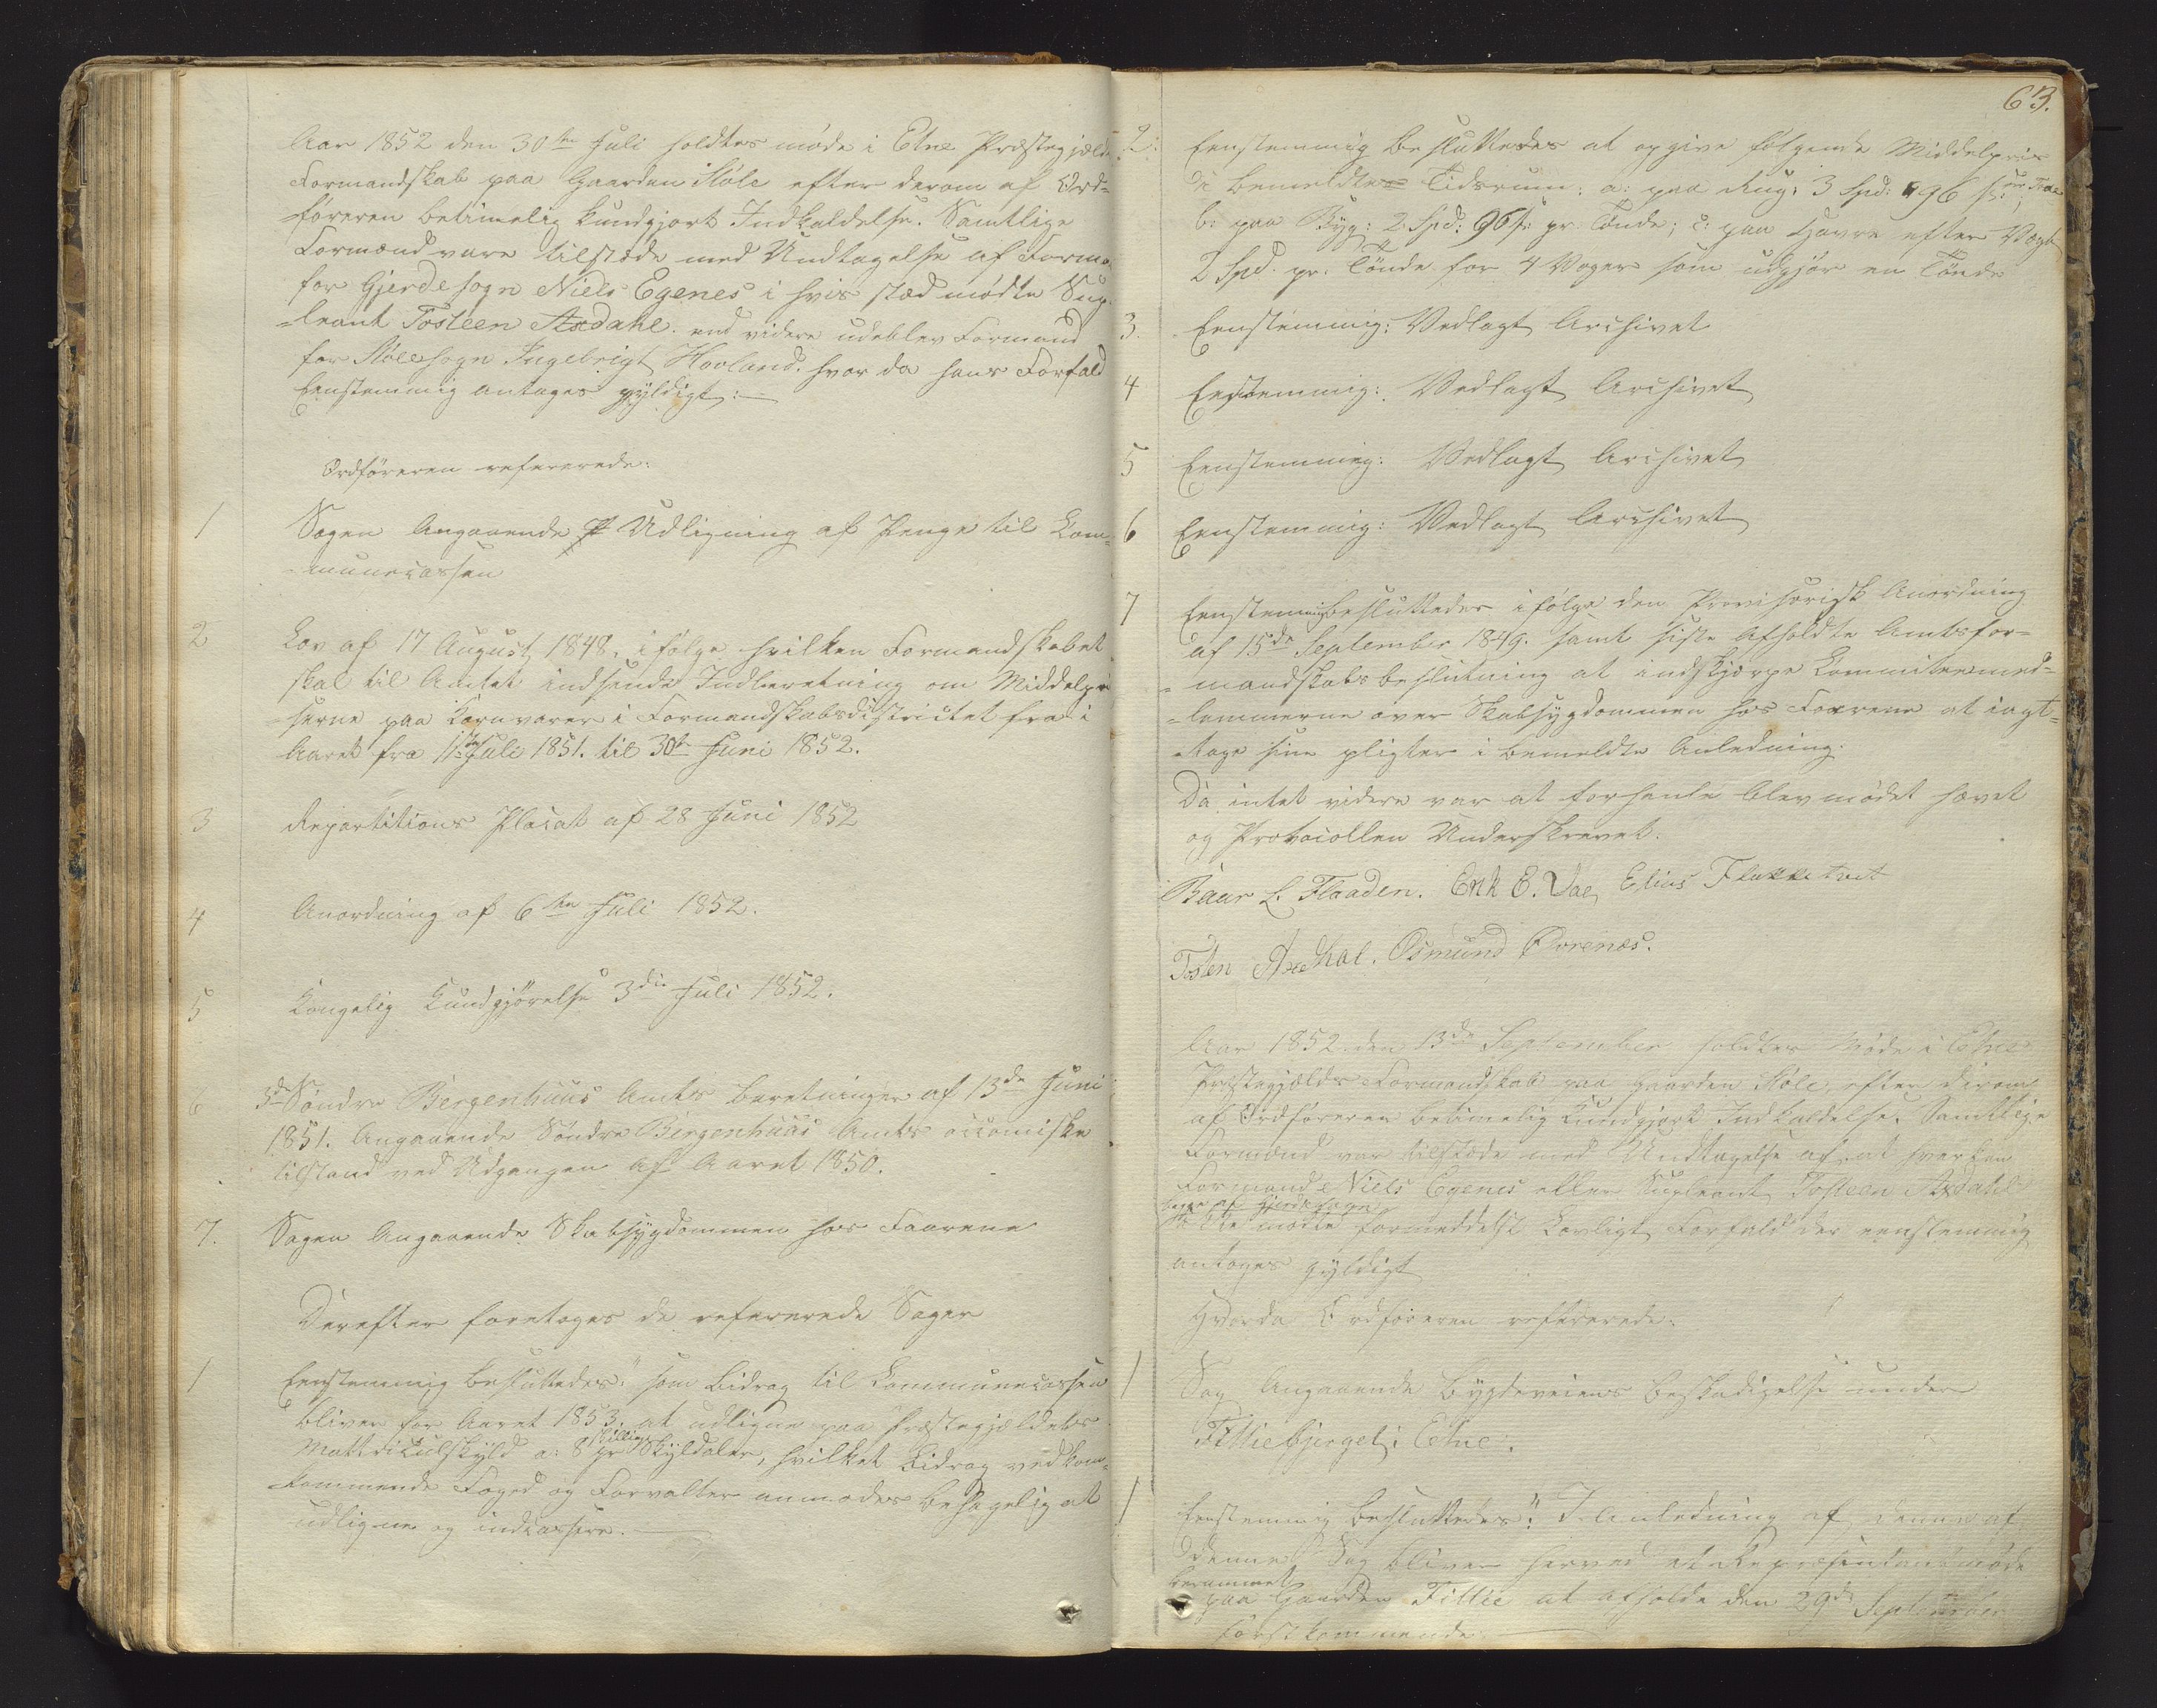 Aar 1852 den 30te Juli holdtes møde i Etne Præstegjælds
Formandskab paa Gaarden Støle efter derom af Ord-
føreren betimelig kundgjort Indkaldelse. Samtlige
Formænd vare tilstæde med Undtagelse af Formd.
for Gjerde sogn Niels Egenes i hvis stæd mødte Sup-
-leant Tosteen Axdahl. end videre udeblev Formand
for Støle sogn Ingebrigt Hovland. hvor da hans Forfald
Eenstemmig antages gyldigt:—
Ordføreren refererede:
1 Sagen Angaaende Udligning af Penge til Com-
-munecassen
2 Lov af 17 August 1848, ifølge hvilken Formandskabet
skal til Amtet indsende Indberetning om Middelpri
-serne paa Kornvarer i Formandskabsdistrictet fra i
Aaret fra 1ste Juli 1851. til 30te Juni 1852.
3 Repartitions Placat af 28 Juni 1852
4 Anordning af 6te Juli 1852.
5 Kongelig Kundgjørelse 3die Juli 1852.
6 Søndre Bergenhuus Amts beretninger af 13de Juni
1851. Angaaende Søndre Bergenhuus Amts occomiske
tilstand ved Udgangen af Aaret 1850.
7. Sagen Angaaende Skabsygdommen hos Faarene
Derefter foretoges de refererede Sager
1 Eenstemmig besluttedes: som bidrag til Communecassen
bliver for Aaret 1853. at udligne paa Præstegjældets
Mattrikulskyld a: 8 skilling pr Skyldaler, hvilket bidrag vedkom-
-kommende Foged og Forvalter anmodes behagelig at
udligne og indcassere.—
63.
2: Eenstemmig besluttedes at opgive følgende Middelpris
i bemeldte Tidsrum: a: paa Rug: 3 Spd: 96 s: pr Tøne;
b: paa Byg: 2 Spd: 96 s: pr. Tønde; c: paa Havre efter Vægt
2 Spd. pr. Tønde for 4 Voger som udgjør en Tønde
3. Eenstemmig: Vedlagt Archivet
4 Eenstemmig: Vedlagt Archivet
5 Eenstemmig: Vedlagt Archivet
6 Eenstemmig: Vedlagt Archivet
7 Eenstemmig besluttedes ifølge den Provisorisk Anordning
af 15de September 1849. samt siste Afholdte Amtsfor-
-mandskabs beslutning at indskjærpe Commiteemed-
-lemmerne over Skabsygdommen hos Faarene at iagt-
-tage sine pligter i bemeldte Anledning.
Da intet videre var at forhanle blev mødet hævet
og Protocollen Underskrevet.
Baar L. Flaaden. Erik E. Dae, Elius Flukke tvet
Tosten Axdhal. Osmund Øvrenæs.
Aar 1852. den 13de September holdtes Møde i Etne
Præstegjælds Formandskab paa gaarden Støle, efter derom
af Ordføreren betimelig Kundgjort Indkaldelse. Samtlige
Formænd var tilstæde med Undtagelse af at hverken
Formand Niels Egenes eller Supleant Tosteen Axdahl
begge af Gjerde sogn
ikke mødte formeddelst Lovligt Forfald der eenstemmig
antages gyldigt
Hvorda Ordføreren refererede:
1 Sag Angaaende bygdeveiens beskadigelse under
Fittiebjerget i Etne.
1 Eenstemmig besluttedes: I Anledning af denne af
denne Sag bliver herved et Repræsentantmøde
berammet
paa Gaarden Fittie at afholde den 29de September
først kommende—